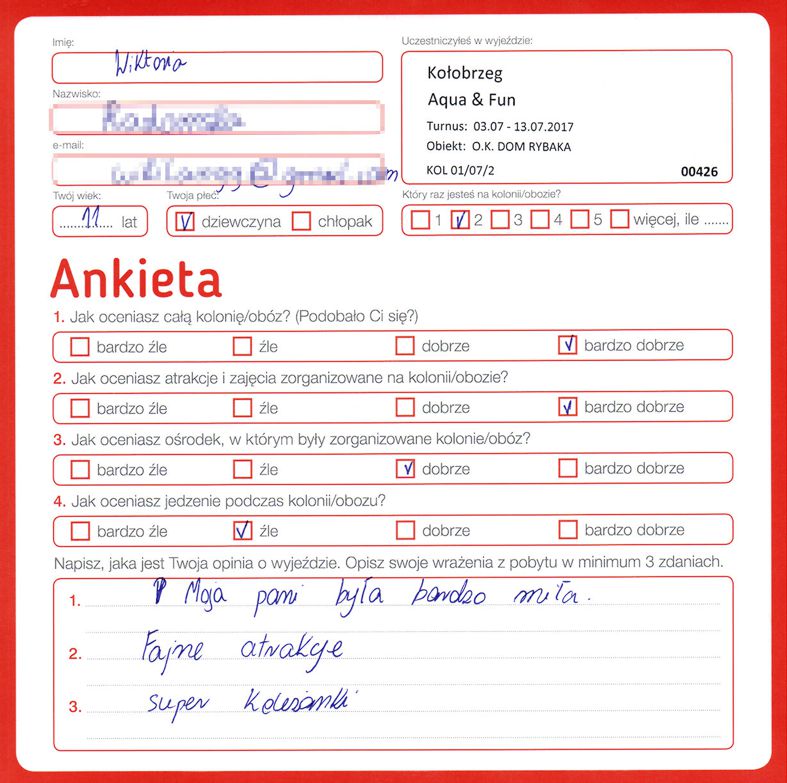 Imię:
Wiktoria
Uczestniczyłeś w wyjeździe:
Kołobrzeg
Aqua & Fun
Turnus: 03.07 - 13.07.2017
Obiekt: O.K. DOM RYBAKA
KOL 01/07/2 00426
Nazwisko:
e-mail:
Twój wiek:
11 lat
Twoja płeć:
dziewczyna chłopak
Który raz jesteś na kolonii/obozie?
1 2 3 4 5 więcej, ile .......
Ankieta
1. Jak oceniasz całą kolonię/obóz? (Podobało Ci się?)
bardzo źle źle dobrze bardzo dobrze
2. Jak oceniasz atrakcje i zajęcia zorganizowane na kolonii/obozie?
bardzo źle źle dobrze bardzo dobrze
3. Jak oceniasz ośrodek, w którym były zorganizowane kolonie/obóz?
bardzo źle źle dobrze bardzo dobrze
4. Jak oceniasz jedzenie podczas kolonii/obozu?
bardzo źle źle dobrze bardzo dobrze
Napisz, jaka jest Twoja opinia o wyjeździe. Opisz swoje wrażenia z pobytu w minimum 3 zdaniach.
1. Moja pani była bardzo miła.
2. Fajne atrakcje
3. super koleżanki